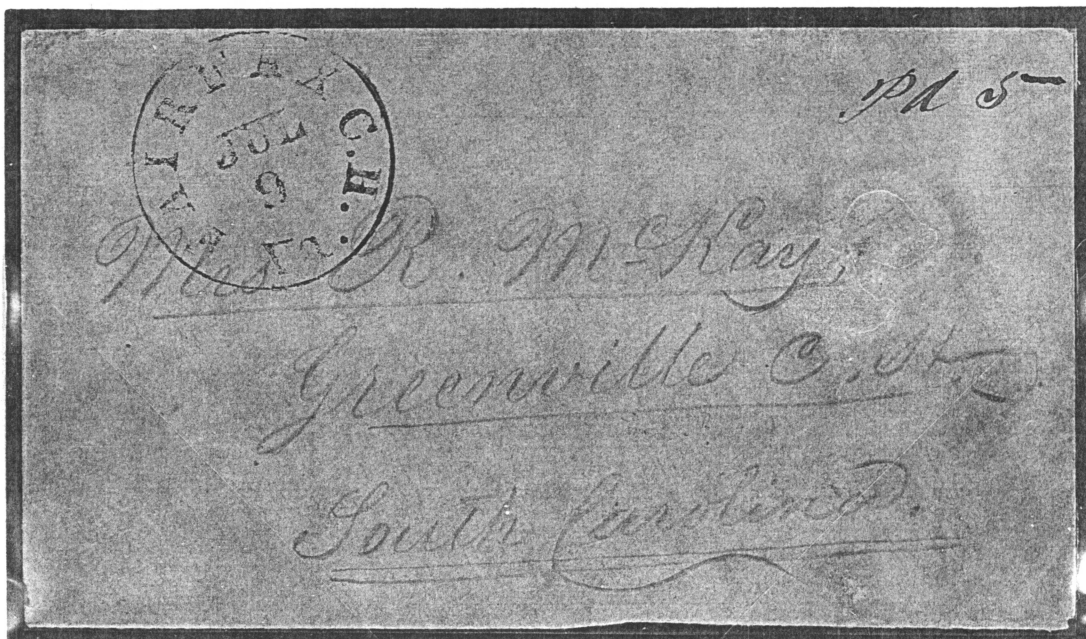 FAIRFAX C.H. Va
JUL
9
Pd 5
Mrs R. McKay,
Greenville C. H.
South Carolina.